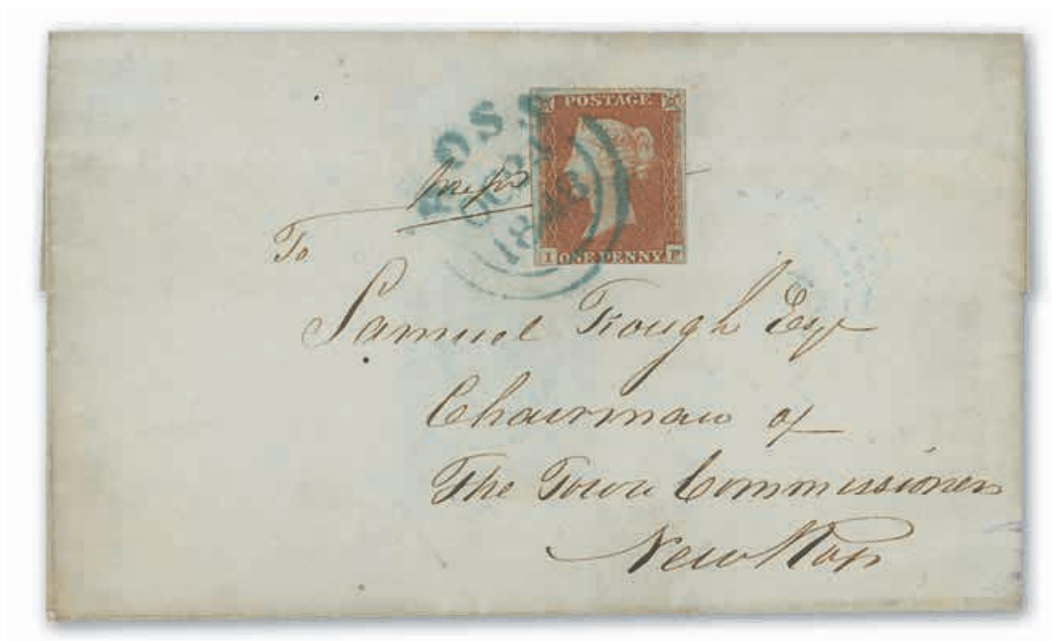 POSTAGE
ROSS
OC
18
I ONE PENNY F
To
Samuel Trough Esqr
Chairman of
The Town Commissioners
New Ross